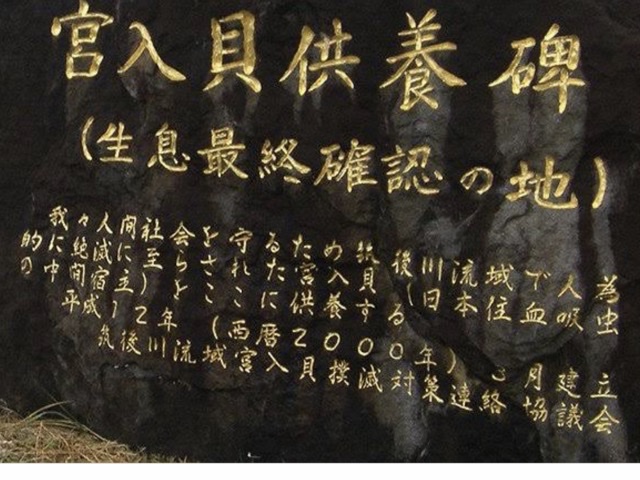 宮入貝供養碑
(生息最終確認の地)
為虫 立会
人吸 建議
下血 月協
域住 3絡
流本 )連
川日 年策
後(る0対
筑貝す0滅
め入養0撲
た宮供2貝
るたに暦入
守れこ西宮
をさここ(域
会らを年流
社至)2川
間に主)後
人滅宿成筑
々絶間平
我に中
的の